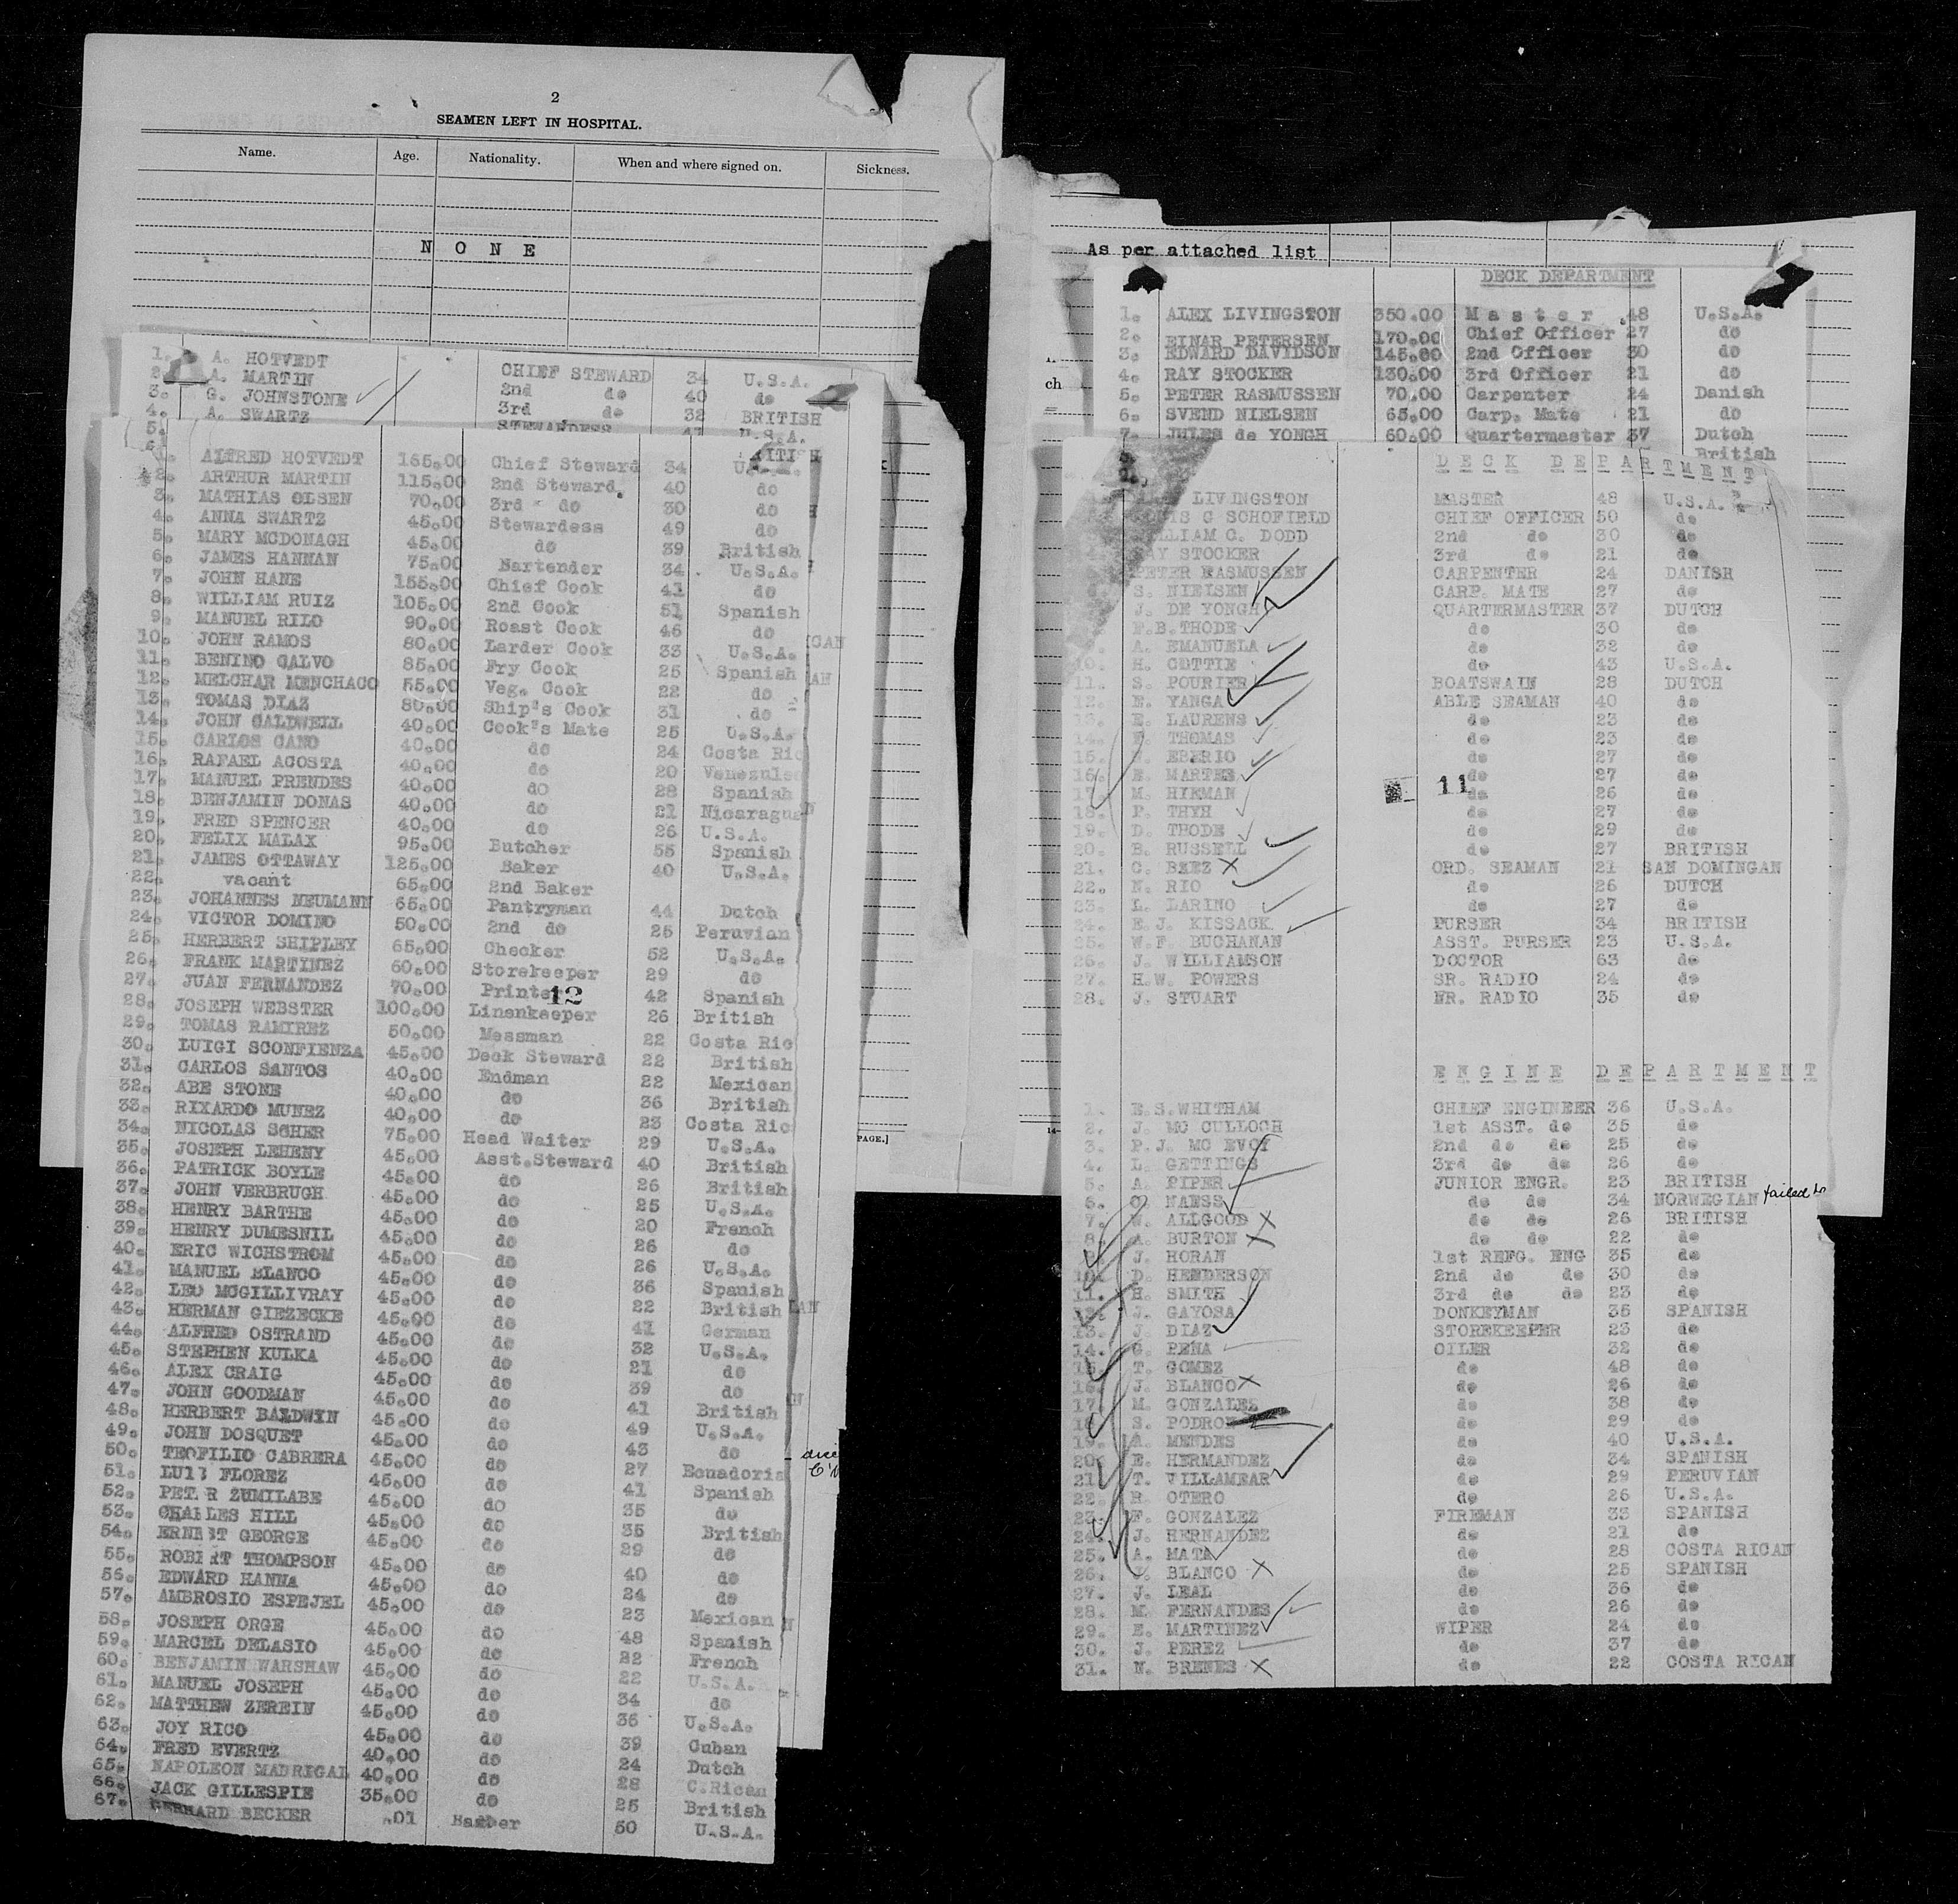 2
SEAMEN LEFT IN HOSPITAL.
Name. Age. Nationality. When and where signed on. Sickness.
N O N E
1. A. HOTVEDT CHIEF STEWARD 34 U.S.A.
2 A. MARTIN 2nd do 40 do
3. G. JOHNSTONE 3rd do 32 BRITISH
4. A. SWARTZ STEWARDESS U.S.A.
5.
6
1. ALFRED HOTVEDT 165.00 Chief Steward 34
2. ARTHUR MARTIN 115.00 2nd Steward. 40 do
3. MATHIAS OLSEN 70.00 3rd do 30 do
4. ANNA SWARTZ 45.00 Stewardess 49 do
5. MARY MCDONAGH 45.00 do 39 British
6. JAMES HANNAN 75.00 Bartender 34 U.S.A.
7. JOHN HANE 155.00 Chief Cook 41 do
8. WILLIAM RUIZ 105.00 2nd Cook 51 Spanish
9. MANUEL RILO 90.00 Roast Cook 46 do
10. JOHN RAMOS 80.00 Larder Cook 33 U.S.A.
11. BENINO CALVO 85.00 Fry Cook 25 Spanish
12. MELCHAR MENCHACO 55.00 Veg. Cook 22 do
13. TOMAS DIAZ 80.00 Ship's Cook 31 do
14. JOHN CALDWELL 40.00 Cook's Mate 25 U.S.A.
15. CARLOS CANO 40.00 do 24 Costa Ric
16. RAFAEL ACOSTA 40.00 do 20 Venezule
17. MANUEL PRENDES 40.00 do 28 Spanish
18. BENJAMIN DONAS 40.00 do 21 Nicaragua
19. FRED SPENCER 40.00 do 26 U.S.A.
20. FELIX MALAX 95.00 Butcher 55 Spanish
21. JAMES OTTAWAY 125.00 Baker 40 U.S.A.
22. vacant 65.00 2nd Baker
23. JOHANNES NEUMANN 65.00 Pantryman 44 Dutch
24. VICTOR DOMINO 50.00 2nd do 25 Peruvian
25. HERBERT SHIPLEY 65.00 Checker 52 U.S.A.
26. FRANK MARTINEZ 60.00 Storekeeper 29 do
27. JUAN FERNANDEZ 70.00 Printer 42 Spanish
12
28. JOSEPH WEBSTER 100.00 Linenkeeper 26 British
29. TOMAS RAMIREZ 50.00 Messman 22 Costa Ric
30. LUIGI SCONFIENZA 45.00 Deck Steward 22 British
31. CARLOS SANTOS 40.00 Endman 22 Mexican
32. ABE STONE 40.00 do 36 British
33. RIXARDO MUNEZ 40.00 do 23 Costa Ric
34. NICOLAS SCHER 75.00 Head Waiter 29 U.S.A.
35. JOSEPH LEHENY 45.00 Asst.Steward 40 British
36. PATRICK BOYLE 45.00 do 26 British
37. JOHN VERBRUGH 45.00 do 25 U.S.A.
38. HENRY BARTHE 45.00 do 20 French
39. HENRY DUMESNIL 45.00 do 26 do
40. ERIC WICHSTROM 45.00 do 26 U.S.A.
41. MANUEL BLANCO 45.00 do 36 Spanish
42. LEO MCGILLIVRAY 45.00 do 22 British
43. HERMAN GIEZECKE 45.00 do 41 German
44. ALFRED OSTRAND 45.00 do 32 U.S.A.
45. STEPHEN KULKA 45.00 do 21 do
46. ALEX CRAIG 45.00 do 39 do
47. JOHN GOODMAN 45.00 do 41 British
48. HERBERT BALDWIN 45.00 do 49 U.S.A.
49. JOHN DOSQUET 45.00 do 43 do
50. TEOFILIO CABRERA 45.00 do 27 Ecuadoria
51. LUIS FLOREZ 45.00 do 41 Spanish
52. PETER ZUMILABE 45.00 do 35 do
53. CHARLES HILL 45.00 do 35 British
54. ERNEST GEORGE 45.00 do 29 do
55. ROBERT THOMPSON 45.00 do 40 do
56. EDWARD HANNA 45.00 do 24 do
57. AMBROSIO ESPEJEL 45.00 do 23 Mexican
58. JOSEPH ORGE 45.00 do 48 Spanish
59. MARCEL DELASIO 45.00 do 22 French
60. BENJAMIN WARSHAW 45.00 do 22 U.S.A.
61. MANUEL JOSEPH 45.00 do 34 do
62. MATTHEW ZEREIN 45.00 do 36 U.S.A.
63. JOY RICO 45.00 do 39 Cuban
64. FRED EVERTZ 40.00 do 24 Dutch
65. NAPOLEON MADRIGAL 40.00 do 28 C.Rican
66. JACK GILLESPIE 35.00 do 25 British
67. GERHARD BECKER .01 Barber 50 U.S.A.
PAGE.]
As per attached list
ch
DECK DEPARTMENT
1. ALEX LIVINGSTON 350.00 Master 48 U.S.A.
2. EINAR PETERSEN 170.00 Chief Officer 27 do
3. EDWARD DAVIDSON 145.00 2nd Officer 30 do
4. RAY STOCKER 130.00 3rd Officer 21 do
5. PETER RASMUSSEN 70.00 Carpenter 24 Danish
6. SVEND NIELSEN 65.00 Carp. Mate 21 do
7. JULES de YONGH 60.00 Quartermaster 37 Dutch
British
DECK DEPARTMENT
LIVINGSTON MASTER 48 U.S.A.
G SCHOFIELD CHIEF OFFICER 50 do
WILLIAM C. DODD 2nd do 30 do
RAY STOCKER 3rd do 21 do
PETER RASMUSSEN CARPENTER 24 DANISH
S. NIELSEN CARP. MATE 27 do
J. DE YONGH QUARTERMASTER 37 DUTCH
F.B.THODE do 30 do
A. EMANUELA do 32 do
10. H. COTTIE do 43 U.S.A.
11. S. POURIER BOATSWAIN 28 DUTCH
12. E. YANGA ABLE SEAMAN 40 do
13. E. LAURENS do 23 do
14. F. THOMAS do 23 do
15. EBERIO do 27 do
16. E. MARTES do 27 do
11
17. M. HIEMAN do 26 do
18. P. THYH do 27 do
19. D. THODE do 29 do
20. B. RUSSELL do 27 BRITISH
21. C. BAEZ X ORD. SEAMAN 21 SAN DOMINGAN
22. N. RIO do 26 DUTCH
23. L. LARINO do 27 do
24. E.J. KISSACK PURSER 34 BRITISH
25. W.F. BUCHANAN ASST. PURSER 23 U.S.A.
26. J. WILLIAMSON DOCTOR 63 do
27. H.W. POWERS SR. RADIO 24 do
28. J. STUART NR. RADIO 35 do
ENGINE DEPARTMENT
1. E.S.WHITHAM CHIEF ENGINEER 36 U.S.A.
2. J. MC CULLOCH 1st ASST. do 35 do
3. P.J. MC EVOY 2nd do do 25 do
4. L. GETTINGS 3rd do do 26 do
5. A. PIPER JUNIOR ENGR. 23 BRITISH
6. O. NAESS do do 34 NORWEGIAN failed to
7. W. ALLGOOD X do do 26 BRITISH
8. A. BURTON X do do 22 do
9. J. HORAN 1st REFG. ENG 35 do
10. D. HENDERSON 2nd do do 30 do
11. H. SMITH 3rd do do 23 do
12. J. GAYOSA DONKEYMAN 35 SPANISH
13. J. DIAZ STOREKEEPER 23 do
14. G. PEÑA OILER 32 do
15. T. GOMEZ do 48 do
16. J. BLANCO X do 26 do
17. M. GONZALEZ do 38 do
18. S. PODRO do 29 do
19. A. MENDES do 40 U.S.A.
20. E. HERNANDEZ do 34 SPANISH
21. T. VILLAMEAR do 29 PERUVIAN
22. R. OTERO do 26 U.S.A.
23. F. GONZALEZ FIREMAN 33 SPANISH
24. J. HERNANDEZ do 21 do
25. A. MATA do 28 COSTA RICAN
26. BLANCO X do 25 SPANISH
27. J. LEAL do 36 do
28. M. FERNANDES do 26 do
29. E. MARTINEZ WIPER 24 do
30. J. PEREZ do 37 do
31. N. BRENES X do 22 COSTA RICAN